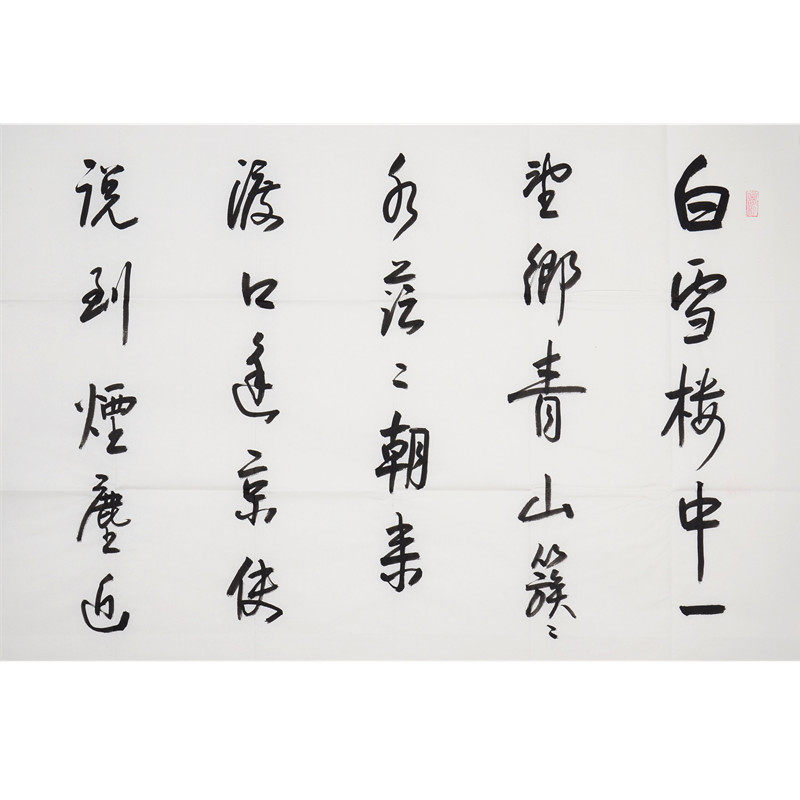 白雪楼中一
望鄉青山簇〻
水茫〻朝来
渡口逢京使
说到煙塵近